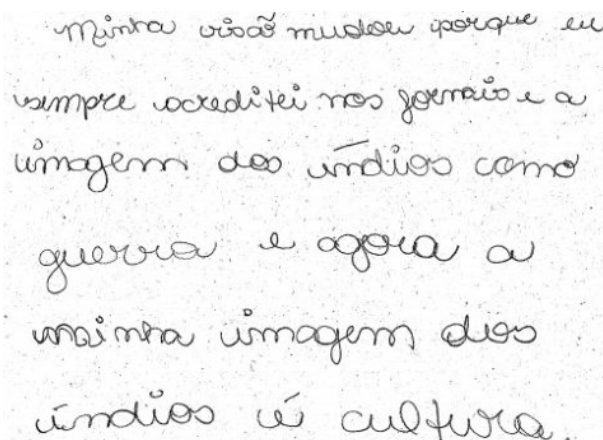 Minha visão mudou porque eu
sempre acreditei nos jornais e a
imagem dos índios como
guerra e agora a
minha imagem dos
índios é cultura